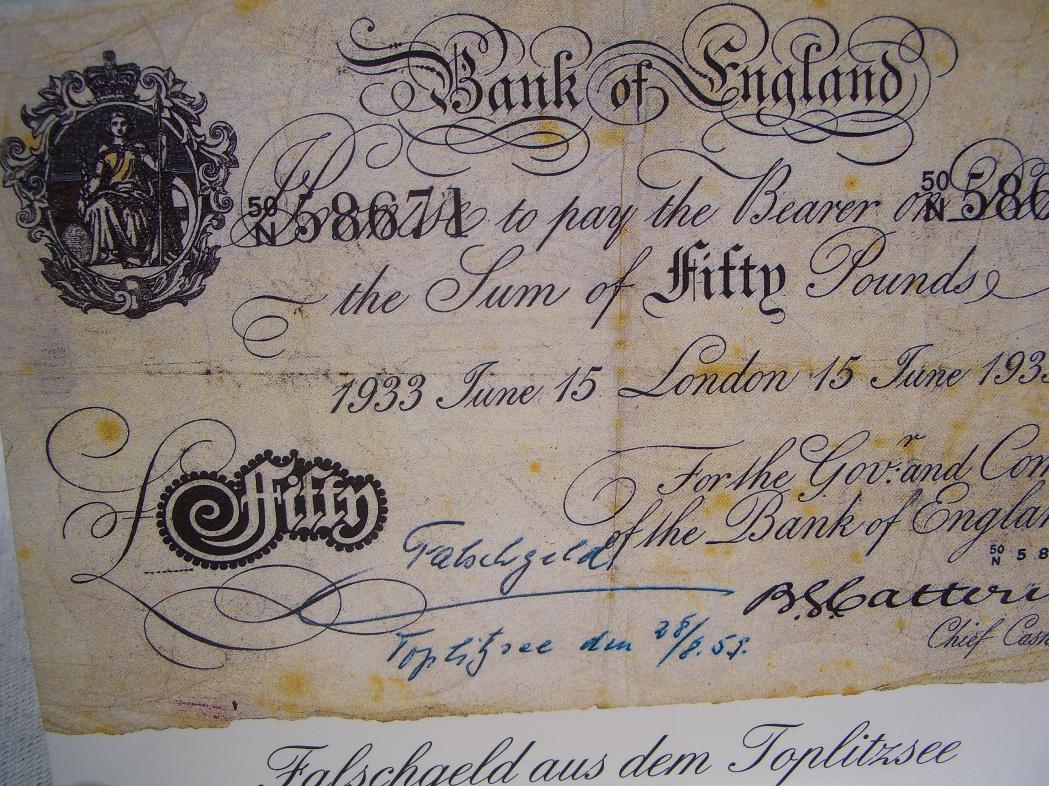 Bank of England
50 N 58671 Promise to pay the Bearer on 50 N 586
the Sum of Fifty Pounds
1933 June 15 London 15 June 193
£ Fifty
For the Gov.r and Com
of the Bank of Englan
50 N 5 8
Falschgeld
B.G. Catter
Chief Cash
Toplitzsee den 28/8.59.
Falschgeld aus dem Toplitzsee